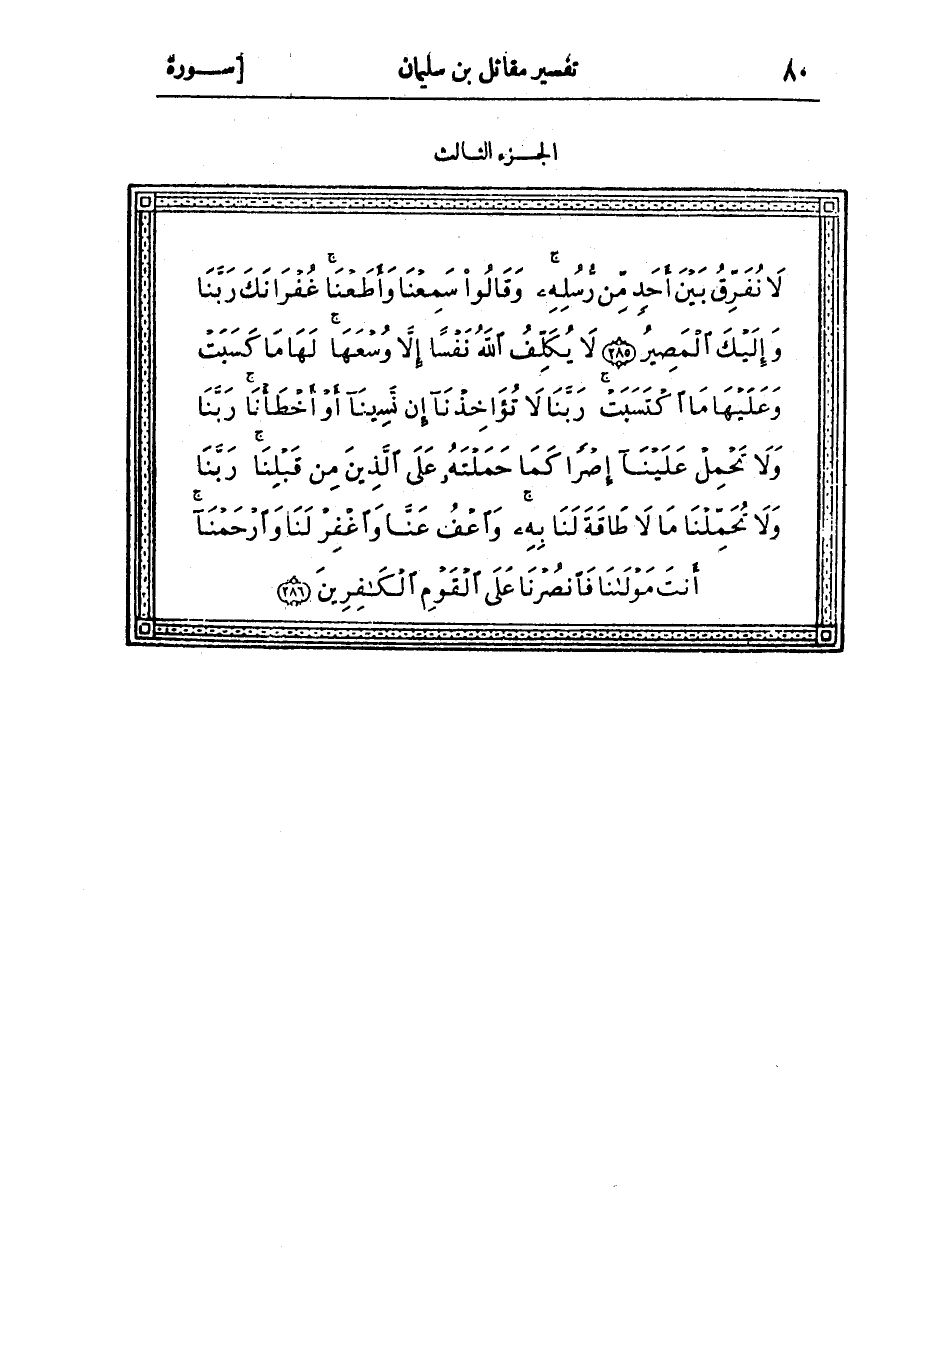 ٨٠ تفسير مقاتل بن سليمان [ســورة
الجــزء الثــالث
لَا نُفَرِّقُ بَيْنَ أَحَدٍ مِّن رُّسُلِهِۦ ۚ وَقَالُوا۟ سَمِعْنَا وَأَطَعْنَا ۖ غُفْرَانَكَ رَبَّنَا
وَإِلَيْكَ ٱلْمَصِيرُ ﴿٢٨٥﴾ لَا يُكَلِّفُ ٱللَّهُ نَفْسًا إِلَّا وُسْعَهَا ۚ لَهَا مَا كَسَبَتْ
وَعَلَيْهَا مَا ٱكْتَسَبَتْ ۚ رَبَّنَا لَا تُؤَاخِذْنَآ إِن نَّسِينَآ أَوْ أَخْطَأْنَا ۚ رَبَّنَا
وَلَا تَحْمِلْ عَلَيْنَآ إِصْرًا كَمَا حَمَلْتَهُۥ عَلَى ٱلَّذِينَ مِن قَبْلِنَا ۚ رَبَّنَا
وَلَا تُحَمِّلْنَا مَا لَا طَاقَةَ لَنَا بِهِۦ ۚ وَٱعْفُ عَنَّا وَٱغْفِرْ لَنَا وَٱرْحَمْنَآ ۚ
أَنتَ مَوْلَىٰنَا فَٱنصُرْنَا عَلَى ٱلْقَوْمِ ٱلْكَـٰفِرِينَ ﴿٢٨٦﴾